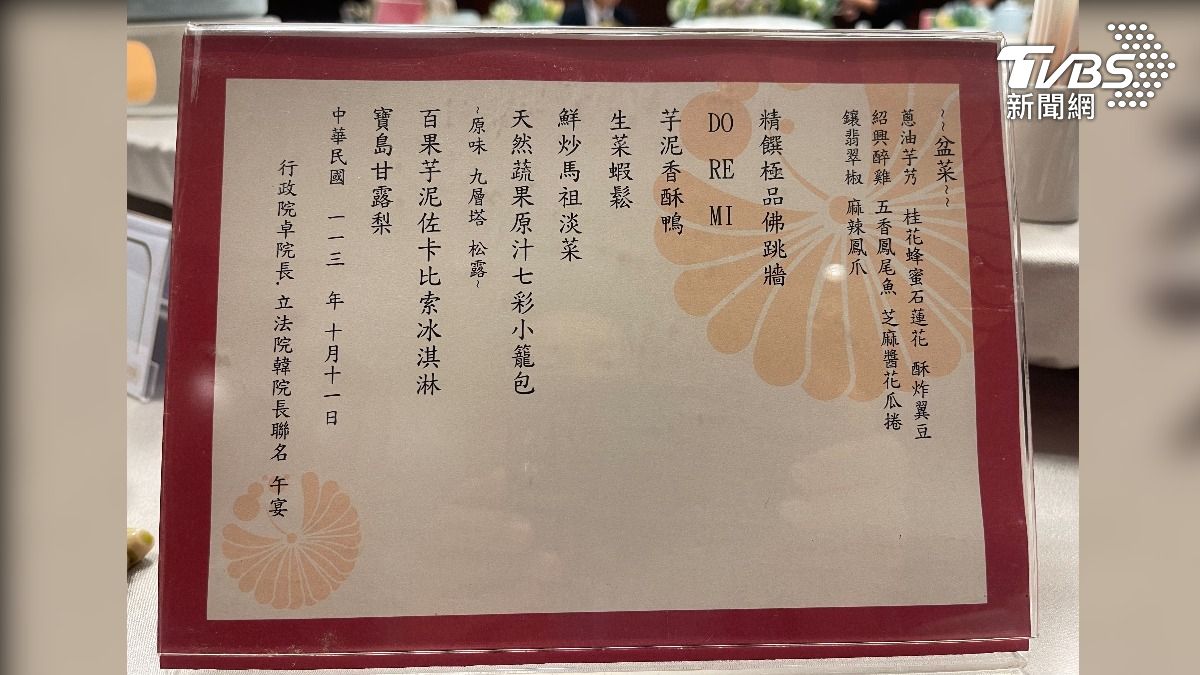 ~~盆菜~~
蔥油芋艿 桂花蜂蜜石蓮花 酥炸翼豆
紹興醉雞 五香鳳尾魚 芝麻醬花瓜捲
鑲翡翠椒 麻辣鳳爪
精饌極品佛跳牆
DO RE MI
芋泥香酥鴨
生菜蝦鬆
鮮炒馬祖淡菜
天然蔬果原汁七彩小籠包
~原味 九層塔 松露~
百果芋泥佐卡比索冰淇淋
寶島甘露梨
中華民國 一一三 年 十月十一日
行政院卓院長.立法院韓院長聯名 午宴
TVBS
新聞網